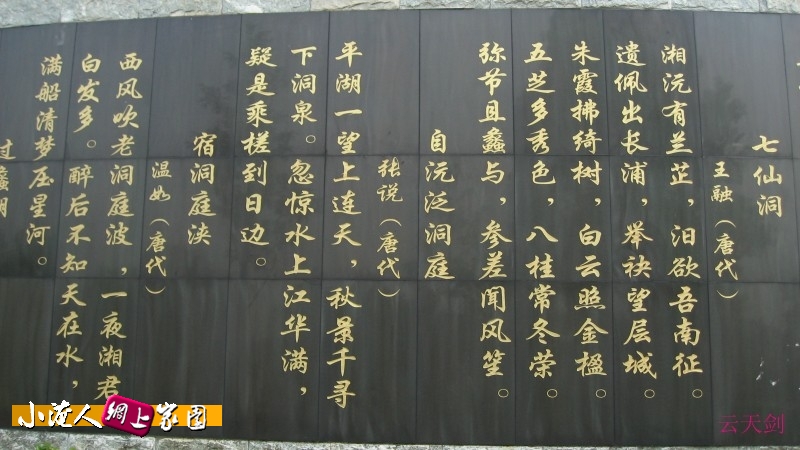 七仙洞
王融（唐代）
湘沅有兰芷，汨欲吾南征。
遗佩出长浦，举袂望层城。
朱霞拂绮树，白云照金楹。
五芝多秀色，八桂常冬荣。
弥节且蠡与，参差闻风笙。
自沅泛洞庭
张说（唐代）
平湖一望上连天，秋景千寻
下洞泉。忽惊水上江华满，
疑是乘槎到日边。
宿洞庭湙
温如（唐代）
西风吹老洞庭波，一夜湘君
白发多。醉后不知天在水，
满船清梦压星河。
过蠡湖
小淹人網上家園
云天剑